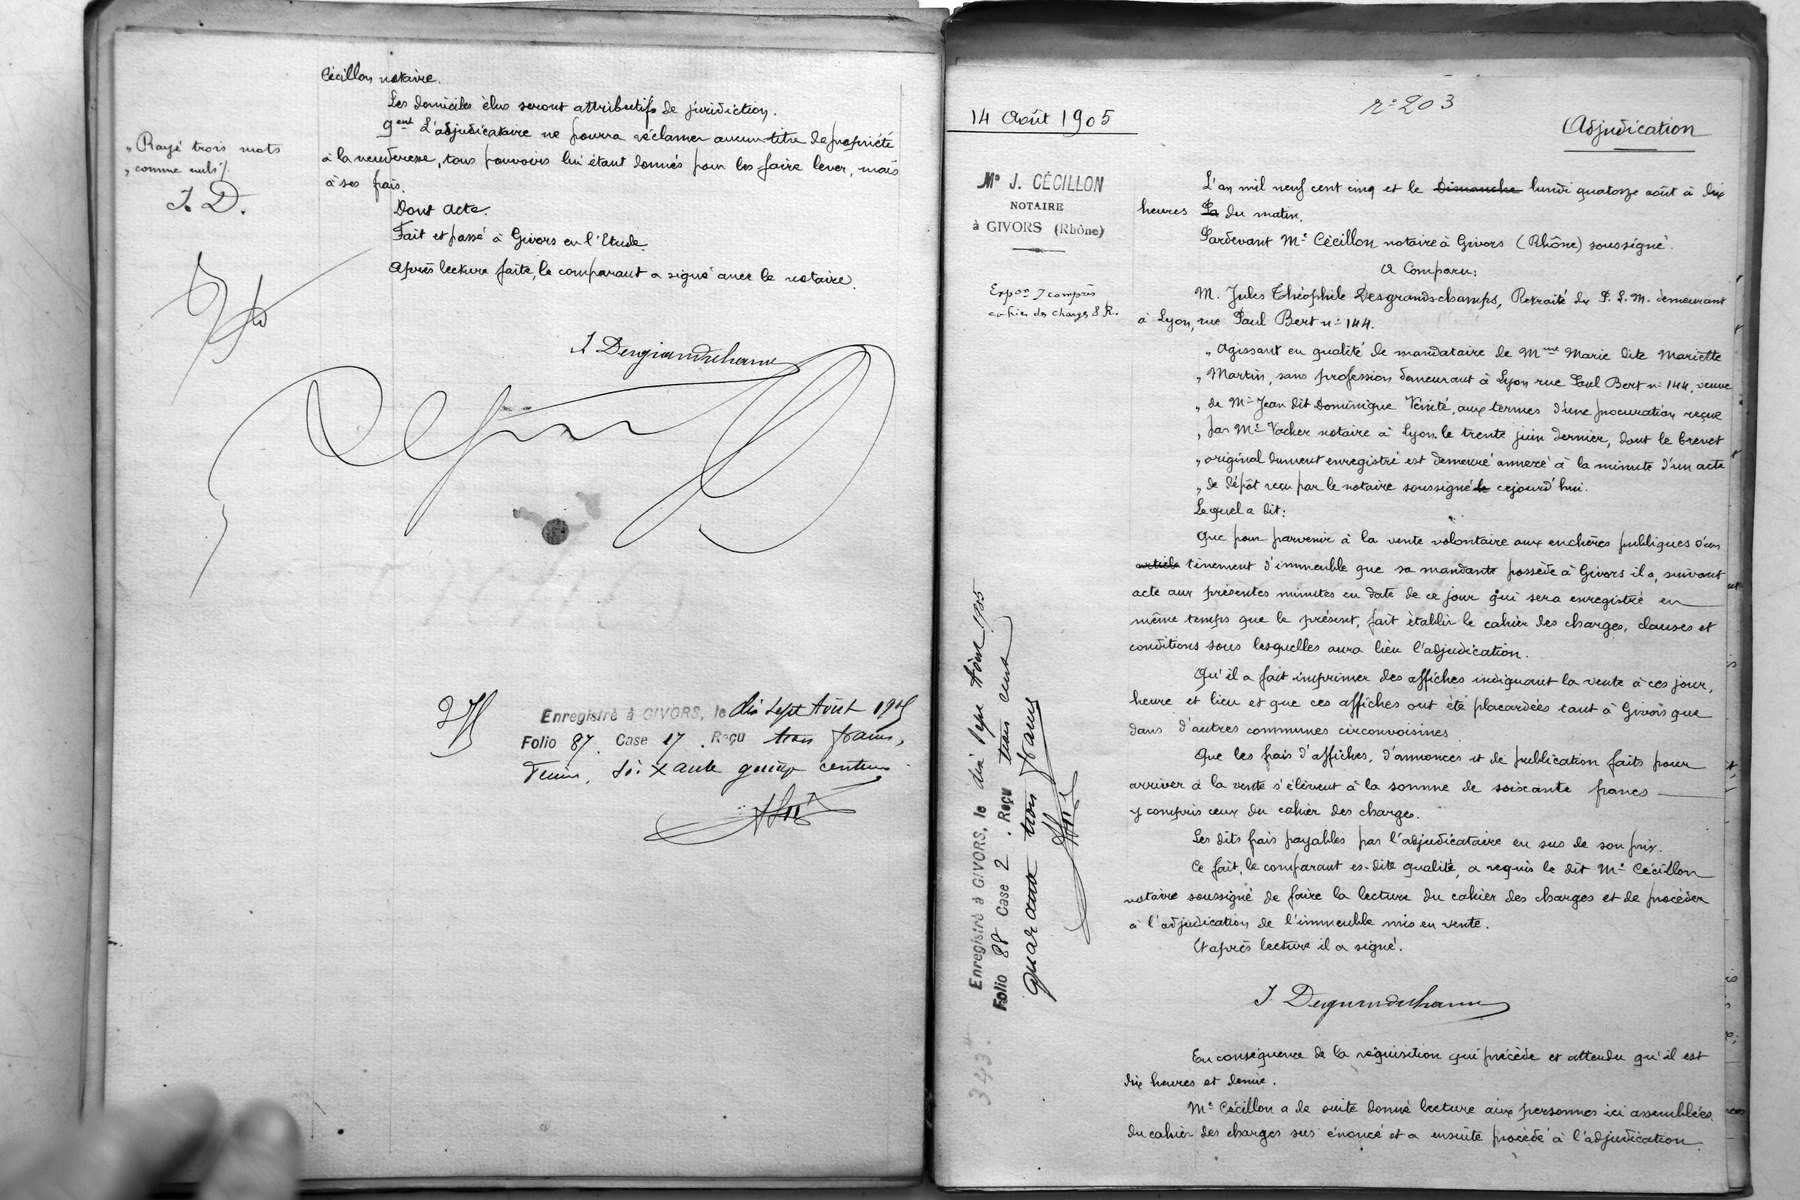 Cécillon notaire.
Les domiciles élus seront attributifs de juridiction.
9ent L'adjudicataire ne pourra réclamer aucun titre de propriété
à la venderesse, tous pouvoirs lui étant donnés pour les faire lever, mais
à ses frais.
Dont acte.
Fait et passé à Givors en l'Etude
Après lecture faite, le comparant a signé avec le notaire.
„ Rayé trois mots
„ comme nuls ./.
J. D.
J Desgrandschamps
Enregistré à GIVORS, le dix sept Août 1905
Folio 87. Case 17. Reçu trois francs,
Decim. soixante quinze centimes
14 Août 1905
n° 203
Adjudication
Me J. CÉCILLON
NOTAIRE
à GIVORS (Rhône)
Expon 7 compris
cahier des charges 8 R.
L'an mil neuf cent cinq et le Dimanche lundi quatorze août à dix
heures du matin.
Pardevant Me Cécillon notaire à Givors (Rhône) soussigné.
A Comparu:
M. Jules Théophile Desgrandschamps, Retraité du P. L. M. demeurant
à Lyon, rue Paul Bert n° 144.
„ Agissant en qualité de mandataire de Mme Marie dite Mariette
„ Martin, sans profession demeurant à Lyon rue Paul Bert n° 144, veuve
„ de Mr Jean dit Dominique Venité, aux termes d'une procuration reçue
„ par Me Vacher notaire à Lyon le trente juin dernier, dont le brevet
„ original dument enregistré est demeuré annexé à la minute d'un acte
„ de dépôt reçu par le notaire soussigné le cejourd'hui.
Lequel a dit:
Que pour parvenir à la vente volontaire aux enchères publiques d'un
article tinement d'immeuble que sa mandante possède à Givors il a, suivant
acte aux présentes minutes en date de ce jour qui sera enregistré en
même temps que le présent, fait établir le cahier des charges, clauses et
conditions sous lesquelles aura lieu l'adjudication.
Qu'il a fait imprimer des affiches indiquant la vente à ces jour,
heure et lieu et que ces affiches ont été placardées tant à Givors que
dans d'autres communes circonvoisines
Que les frais d'affiches, d'annonces et de publication faits pour
arriver à la vente s'élèvent à la somme de soixante francs
y compris ceux du cahier des charges.
Les dits frais payables par l'adjudicataire en sus de son prix.
Ce fait, le comparant es-dite qualité, a requis le dit Me Cécillon
notaire soussigné de faire la lecture du cahier des charges et de procéder
à l'adjudication de l'immeuble mis en vente.
Et après lecture il a signé.
J. Desgrandschamps
En conséquence de la réquisition qui précède et attendu qu'il est
dix heures et demie.
Me Cécillon a de suite donné lecture aux personnes ici assemblées
du cahier des charges sus énoncé et a ensuite procédé à l'adjudication
Enregistré à GIVORS, le dix sept Août 1905
Folio 88 Case 2. Reçu trois cent
quarante trois francs
343"